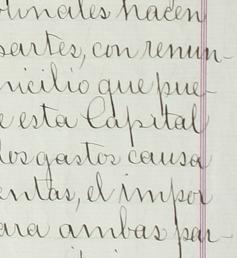 dinales hacen
partes, con renun-
micilio que pue-
e esta Capital
los gastos causa
entas, el impor
ara ambas par-